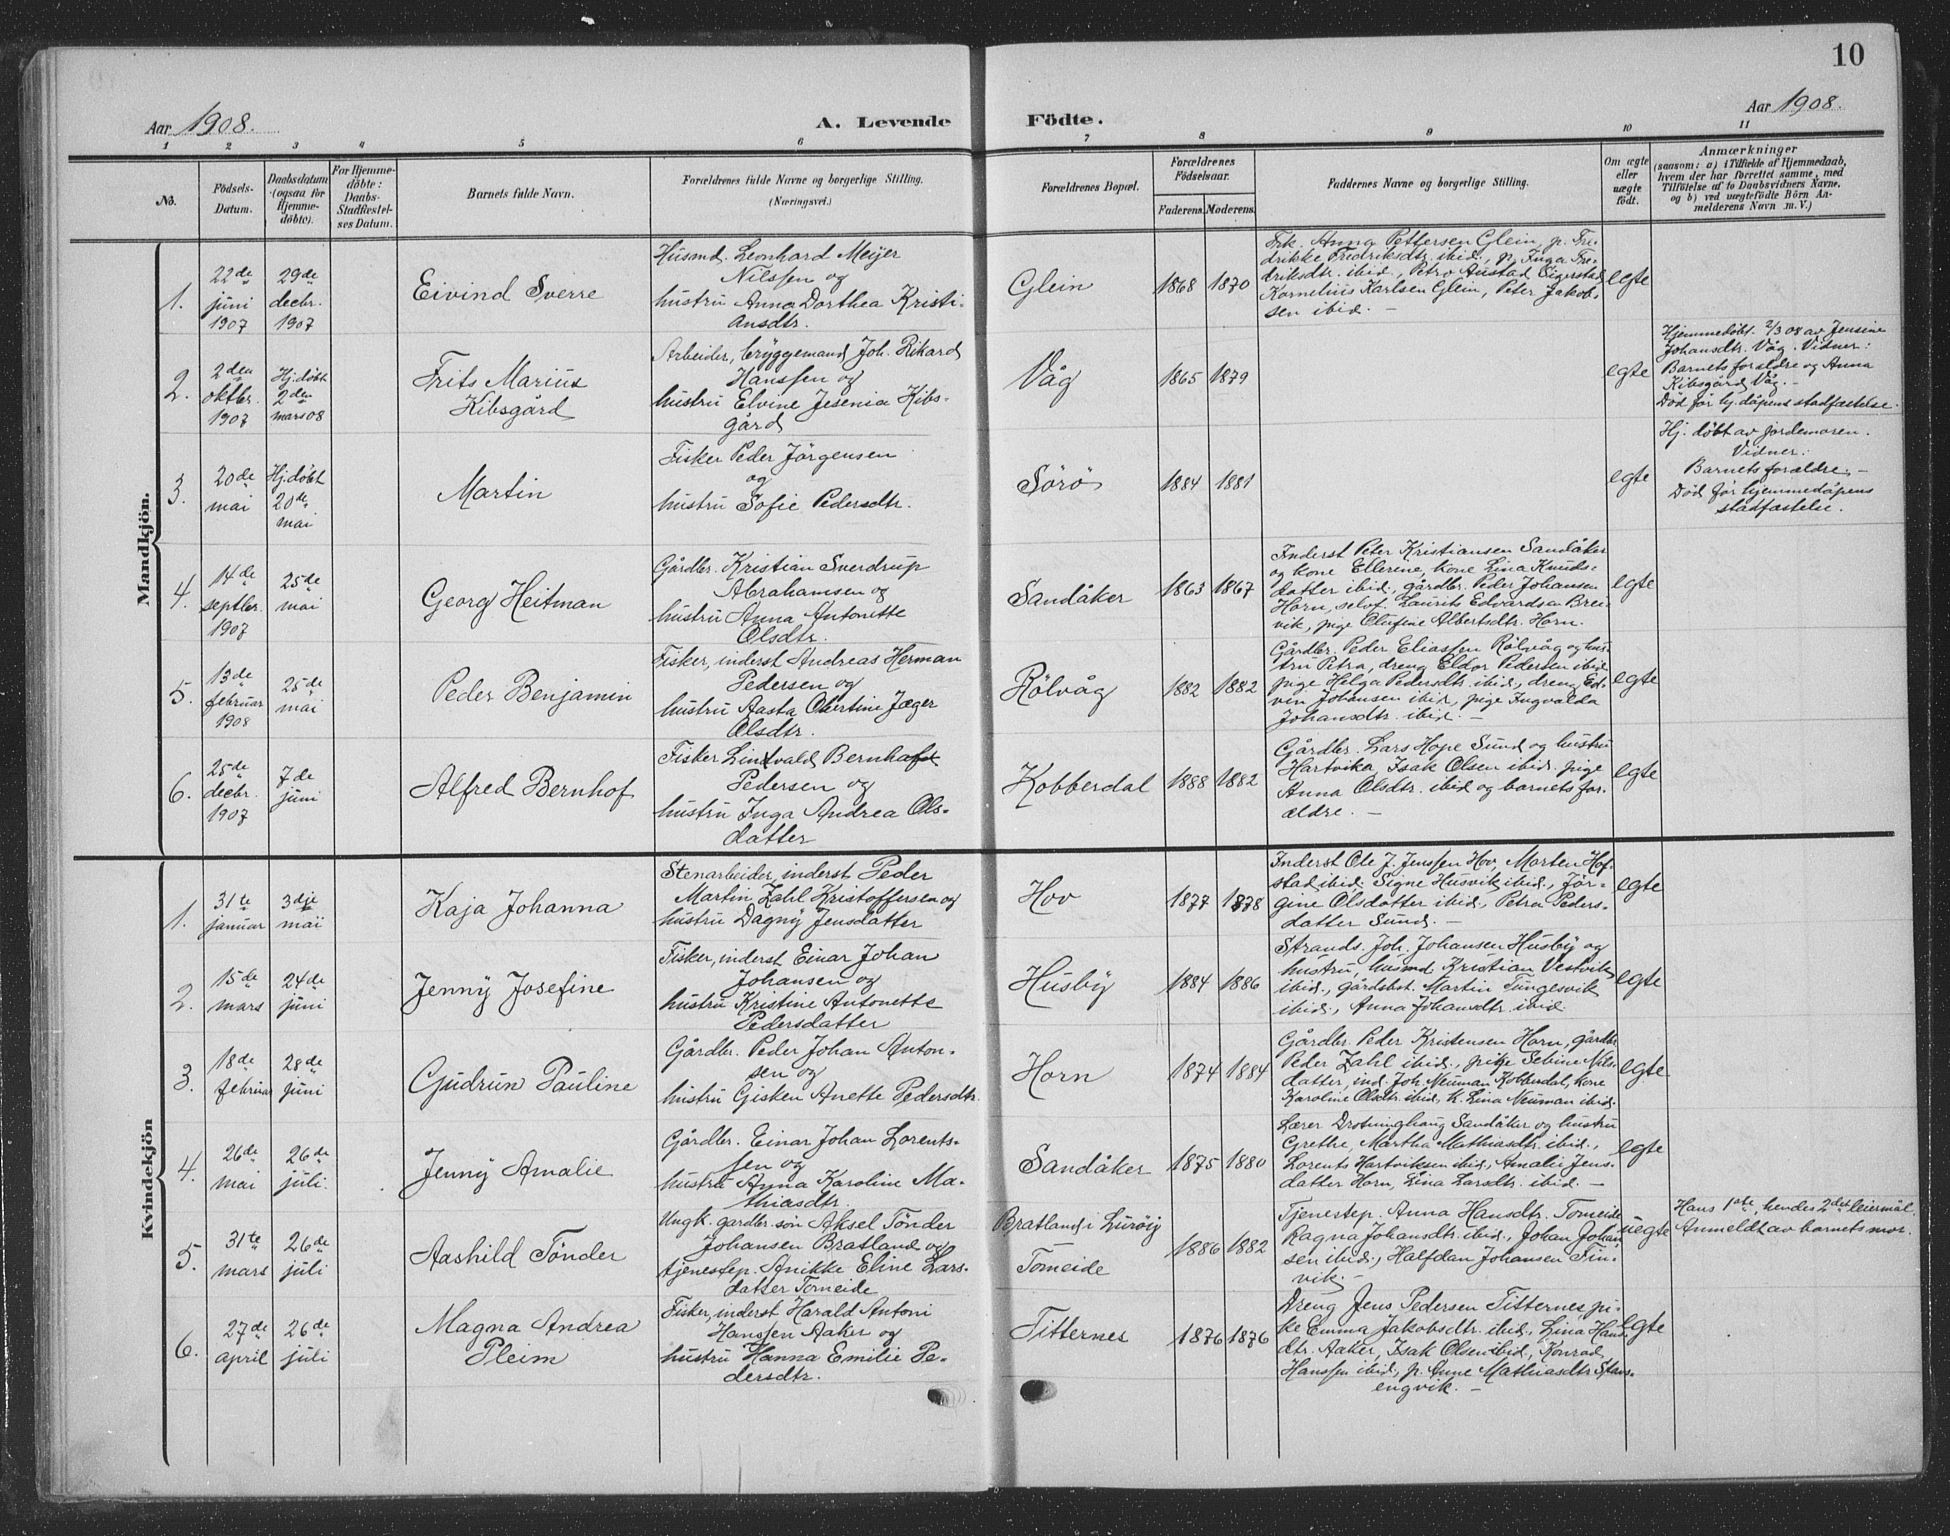 10
Aar 1908.
A. Levende Födte.
Aar 1908.
1 2 3 4 5 6 7 8 9 10 11
No.
Födsels-Datum.
Daabsdatum (ogsaa for Hjemmedöbte).
For Hjemmedöbte: Daabs-Stadfæstelses Datum.
Barnets fulde Navn.
Forældrenes fulde Navne og borgerlige Stilling.
(Næringsvei.)
Forældrenes Bopæl.
Forældrenes Födselsaar.
Faderens. Moderens.
Faddernes Navne og borgerlige Stilling.
Om ægte eller uægte födt.
Anmærkninger
(saasom: a) i Tilfælde af Hjemmedaab,
hvem der har forrettet samme, med
Tilföielse af to Daabsvidners Navne,
og b) ved uægtefödte Börn Anmelderens Navn m. V.)
Mandkjön.
1.
22de juni 1907
29de decbr. 1907
Eivind Sverre
Husmd. Leonhard Meijer
Nilssen og
hustru Anna Dorthea Kristi-
ansdtr.
Glein
1868 1870
Frk. Anna Pettersen Glein, p. Fre-
drikke Fredriksdtr. ibid., p. Inga Fre-
driksdtr. ibid., Petro Austad Eigerstad,
Kornelius Karlsen Glein, Peter Jakob-
sen ibid. —
egte
2.
2den oktbr. 1907
Hj. döbt 2den mars 08
Frits Marius
Kibsgård
Arbeider, bryggemand Joh. Rikard
Hanssen og
hustru Elvine Jesenia Kibs-
gård
Våg
1865 1879
egte
Hjemmedöbt 2/3 08 av Jensine
Johansdtr. Våg. Vidner:
Barnets forældre og Anna
Kibsgård Våg. —
Död för hj. dåpens stadfæstelse.
3.
20de mai
Hj. döbt 20de mai
Martin
Fisker Peder Jörgensen
og
hustru Sofie Pedersdtr.
Sörö
1884 1881
egte
Hj. döbt av jordemoren.
Vidner:
Barnets forældre. —
Död för hjemmedåpens
stadfæstelse.
4.
14de septbr. 1907
25de mai
Georg Heitman
Gårdbr. Kristian Sverdrup
Abrahamsen og
hustru Anna Antonette
Olsdtr.
Sandåker
1863 1867
Inderst Peter Kristiansen Sandåker
og kone Ellerine, kone Lina Knuds-
datter ibid., gårdbr. Peder Johansen
Horn, selvf. Laurits Edvardsen Brei-
vik, pige Olufine Albertsdtr. Horn.
egte
5.
13de februar 1908
25de mai
Peder Benjamin
Fisker, inderst Andreas Herman
Pedersen og
hustru Aasta Obertine Jæger
Olsdtr.
Rölvåg
1882 1882
Gårdbr. Peder Eliassen Rölvåg og hus-
tru Petra, dreng Eldor Pedersen ibid.
pige Helga Pedersdtr. ibid., dreng Ed-
vin Johansen ibid., pige Ingvalda
Johansdtr. ibid. —
egte
6.
25de decbr. 1907
7de juni
Alfred Bernhof
Fisker Lindvald Bernhof
Pedersen og
hustru Inga Andrea Ols-
datter
Kobberdal
1888 1882
Gårdbr. Lars Hope Sund og hustru
Hartvika, Isak Olsen ibid. pige
Anna Olsdtr. ibid og barnets for-
ældre. —
egte
Kvindekjön
1.
31te januar
3dje mai
Kaja Johanna
Stenarbeider, inderst Peder
Martin Zahl Kristoffersen og
hustru Dagny Jensdatter
Hov
1877 1878
Inderst Ole J. Jenssen Hov, Morten Hof-
stad ibid. Signe Husvik ibid., Jör-
gine Olsdatter ibid., Petra Peders-
datter Sund. —
egte
2.
15de mars
24de juni
Jenny Josefine
Fisker, inderst Einar Johan
Johansen og
hustru Kristine Antonette
Pedersdatter
Husby
1884 1886
Strands. Joh. Johansen Husby og
hustru, husmd. Kristian Vestvik
ibid., gårdsbst. Martin Tungesvik
ibid., Anna Johansdtr. ibid
egte
3.
18de februar
28de juni
Gudrun Pauline
Gårdbr. Peder Johan Anton-
sen og
hustru Gisken Anette Pedersdtr.
Horn
1874 1884
Gårdbr. Peder Kristensen Horn, gårdbr.
Peder Zahl ibid., pike Sebine Nils-
datter, ind. Joh. Neuman Kobberdal, kone
Karoline Olsdtr. ibid, k. Lina Neuman ibid.
egte
4.
26de mai
26de juli.
Jenny Amalie
Gårdbr. Einar Johan Lorents-
sen og
hustru Anna Karoline Ma-
thiasdtr.
Sandåker
1875 1880
Lærer Drotninghaug Sandåker og hustru
Grethe, Martha Mathiasdtr. ibid.,
Lorents Hartviksen ibid., Amalie Jens-
datter Horn, Lina Larsdtr. ibid. —
egte
5.
31te mars
26de juli
Aashild Tönder
Ungk. gardbr. sön Aksel Tönder
Johansen Bratland og
tjenestep. Anikke Eline Lars-
datter Tomeide
Bratland i Luröy
Tomeide
1886 1882
Tjenestep. Anna Hansdtr. Tomeide
Ragna Johansdtr. ibid., Johan Johan-
sen ibid., Halfdan Johansen Fin-
vik. —
uegte
Hans 1ste, hendes 2det leiermål.
Anmeldt av barnets mor.
6.
27de april
26de juli
Magna Andrea
Pleim
Fisker, inderst Harald Antoni
Hanssen Aaker og
hustru Hanna Emilie Pe-
dersdtr.
Titternes
1876 1876
Dreng Jens Pedersen Titternes pi-
ke Emma Jakobsdtr. ibid., Lina Hans-
dtr. Aaker, Isak Olsen ibid, Konrad
Hanssen ibid, p. Anne Mathiasdtr. Stans-
engvik. —
egte